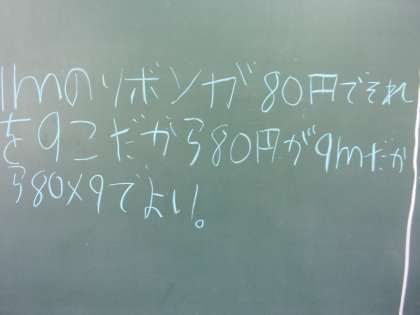 1mのリボンが80円でそれ
を9こだから80円が9mだか
ら80×9でよい。